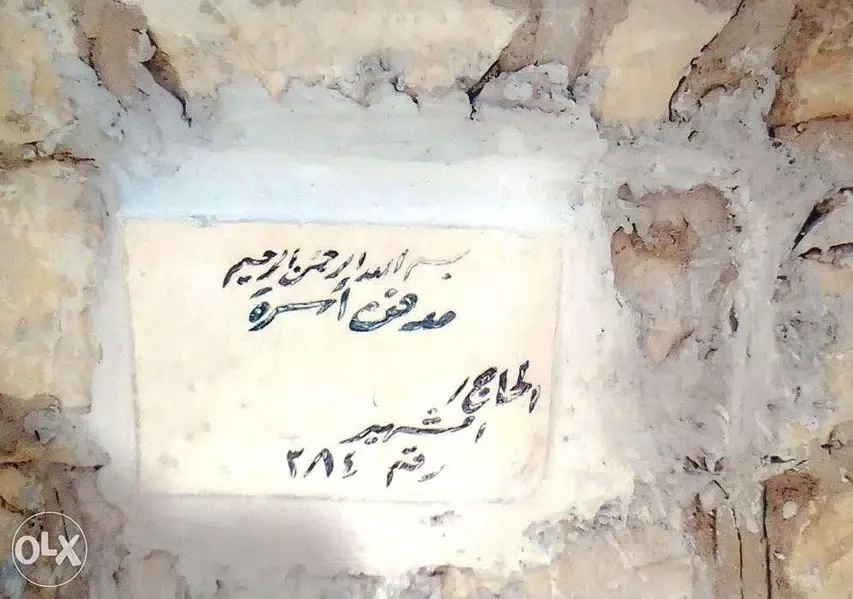 بسم الله الرحمن الرحيم
مدفن أسرة
الحاج /
الشهير
رقم ٢٨٤
OLX